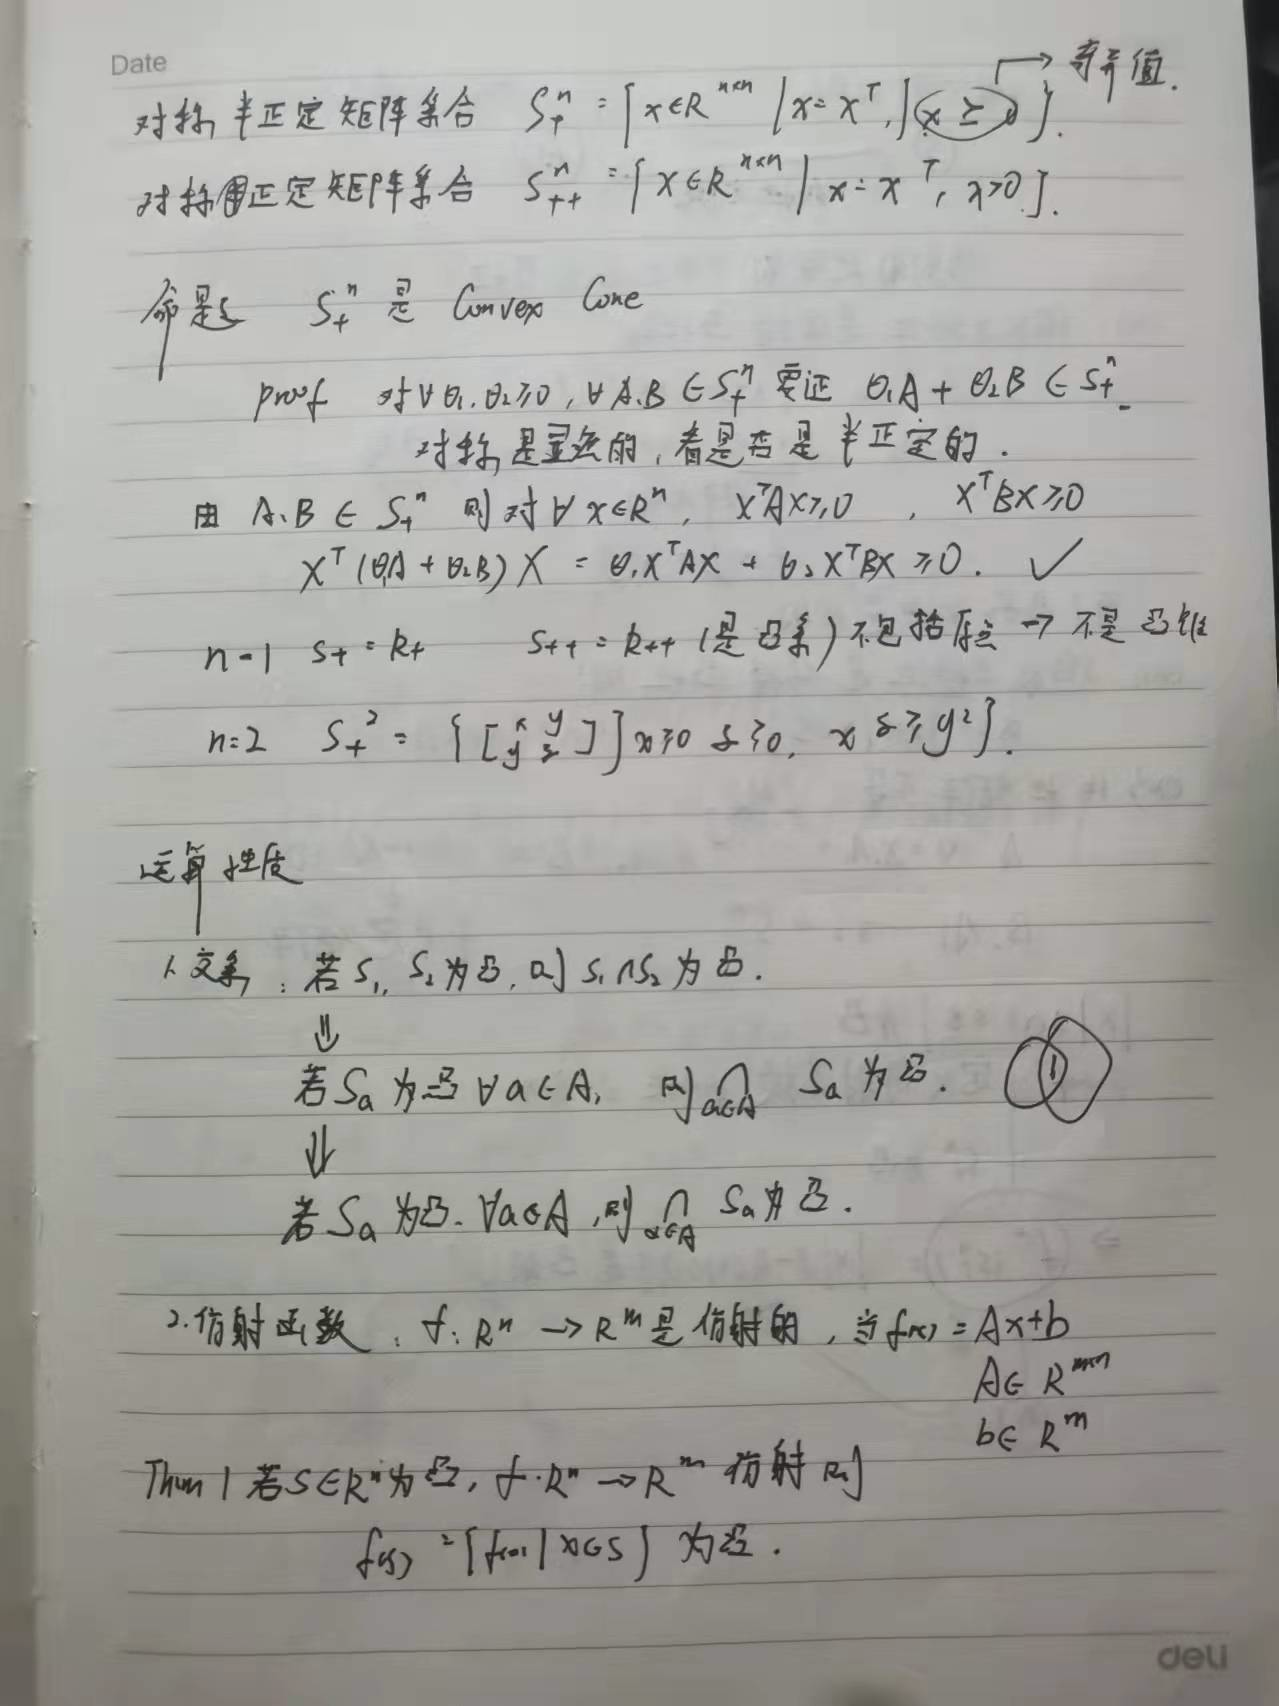 Date
奇异值.
对称半正定矩阵集合 S₊ⁿ = {x∈Rⁿˣⁿ | x=xᵀ, x ≥ 0}.
对称正定矩阵集合 S₊₊ⁿ = {x∈Rⁿˣⁿ | x=xᵀ, x>0}.
命题 S₊ⁿ 是 Convex Cone
proof 对∀θ₁,θ₂≥0, ∀A,B∈S₊ⁿ 要证 θ₁A + θ₂B ∈ S₊ⁿ.
对称是显然的, 看是否是半正定的.
由 A、B ∈ S₊ⁿ 则对∀x∈Rⁿ, XᵀAX≥0 , XᵀBX≥0
Xᵀ(θ₁A + θ₂B)X = θ₁XᵀAX + θ₂XᵀBX ≥0. ✓
n=1 S₊ = R₊ S₊₊ = R₊₊ (是凸集) 不包括原点 → 不是凸锥
n=2 S₊² = {[x y
y z]| x≥0 z≥0, x z≥y²}.
运算性质
1.交集: 若S₁, S₂为凸, 则 S₁∩S₂为凸.
⇓
若Sₐ为凸∀a∈A, 则 ∩ a∈A Sₐ为凸.
⇓
若Sₐ为凸. ∀a∈A, 则 ∩ a∈A Sₐ为凸.
2.仿射函数: f: Rⁿ → Rᵐ是仿射的, 当f(x) = Ax+b
A∈ Rᵐˣⁿ
b∈ Rᵐ
Thm 1 若S∈Rⁿ为凸, f: Rⁿ → Rᵐ 仿射 则
f(s) = {f(x) | x∈S} 为凸.
deli